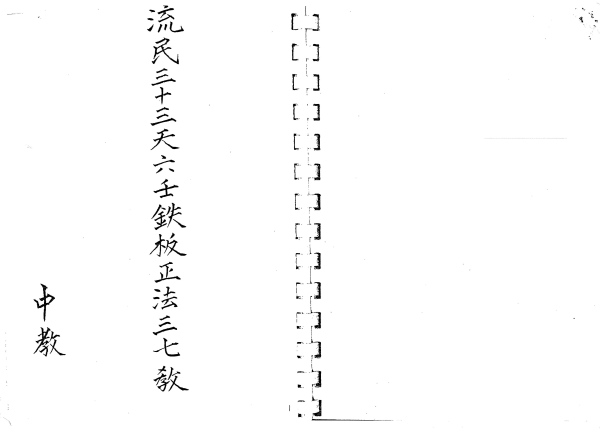 流民三十三天六壬鉄板正法三七教
中教